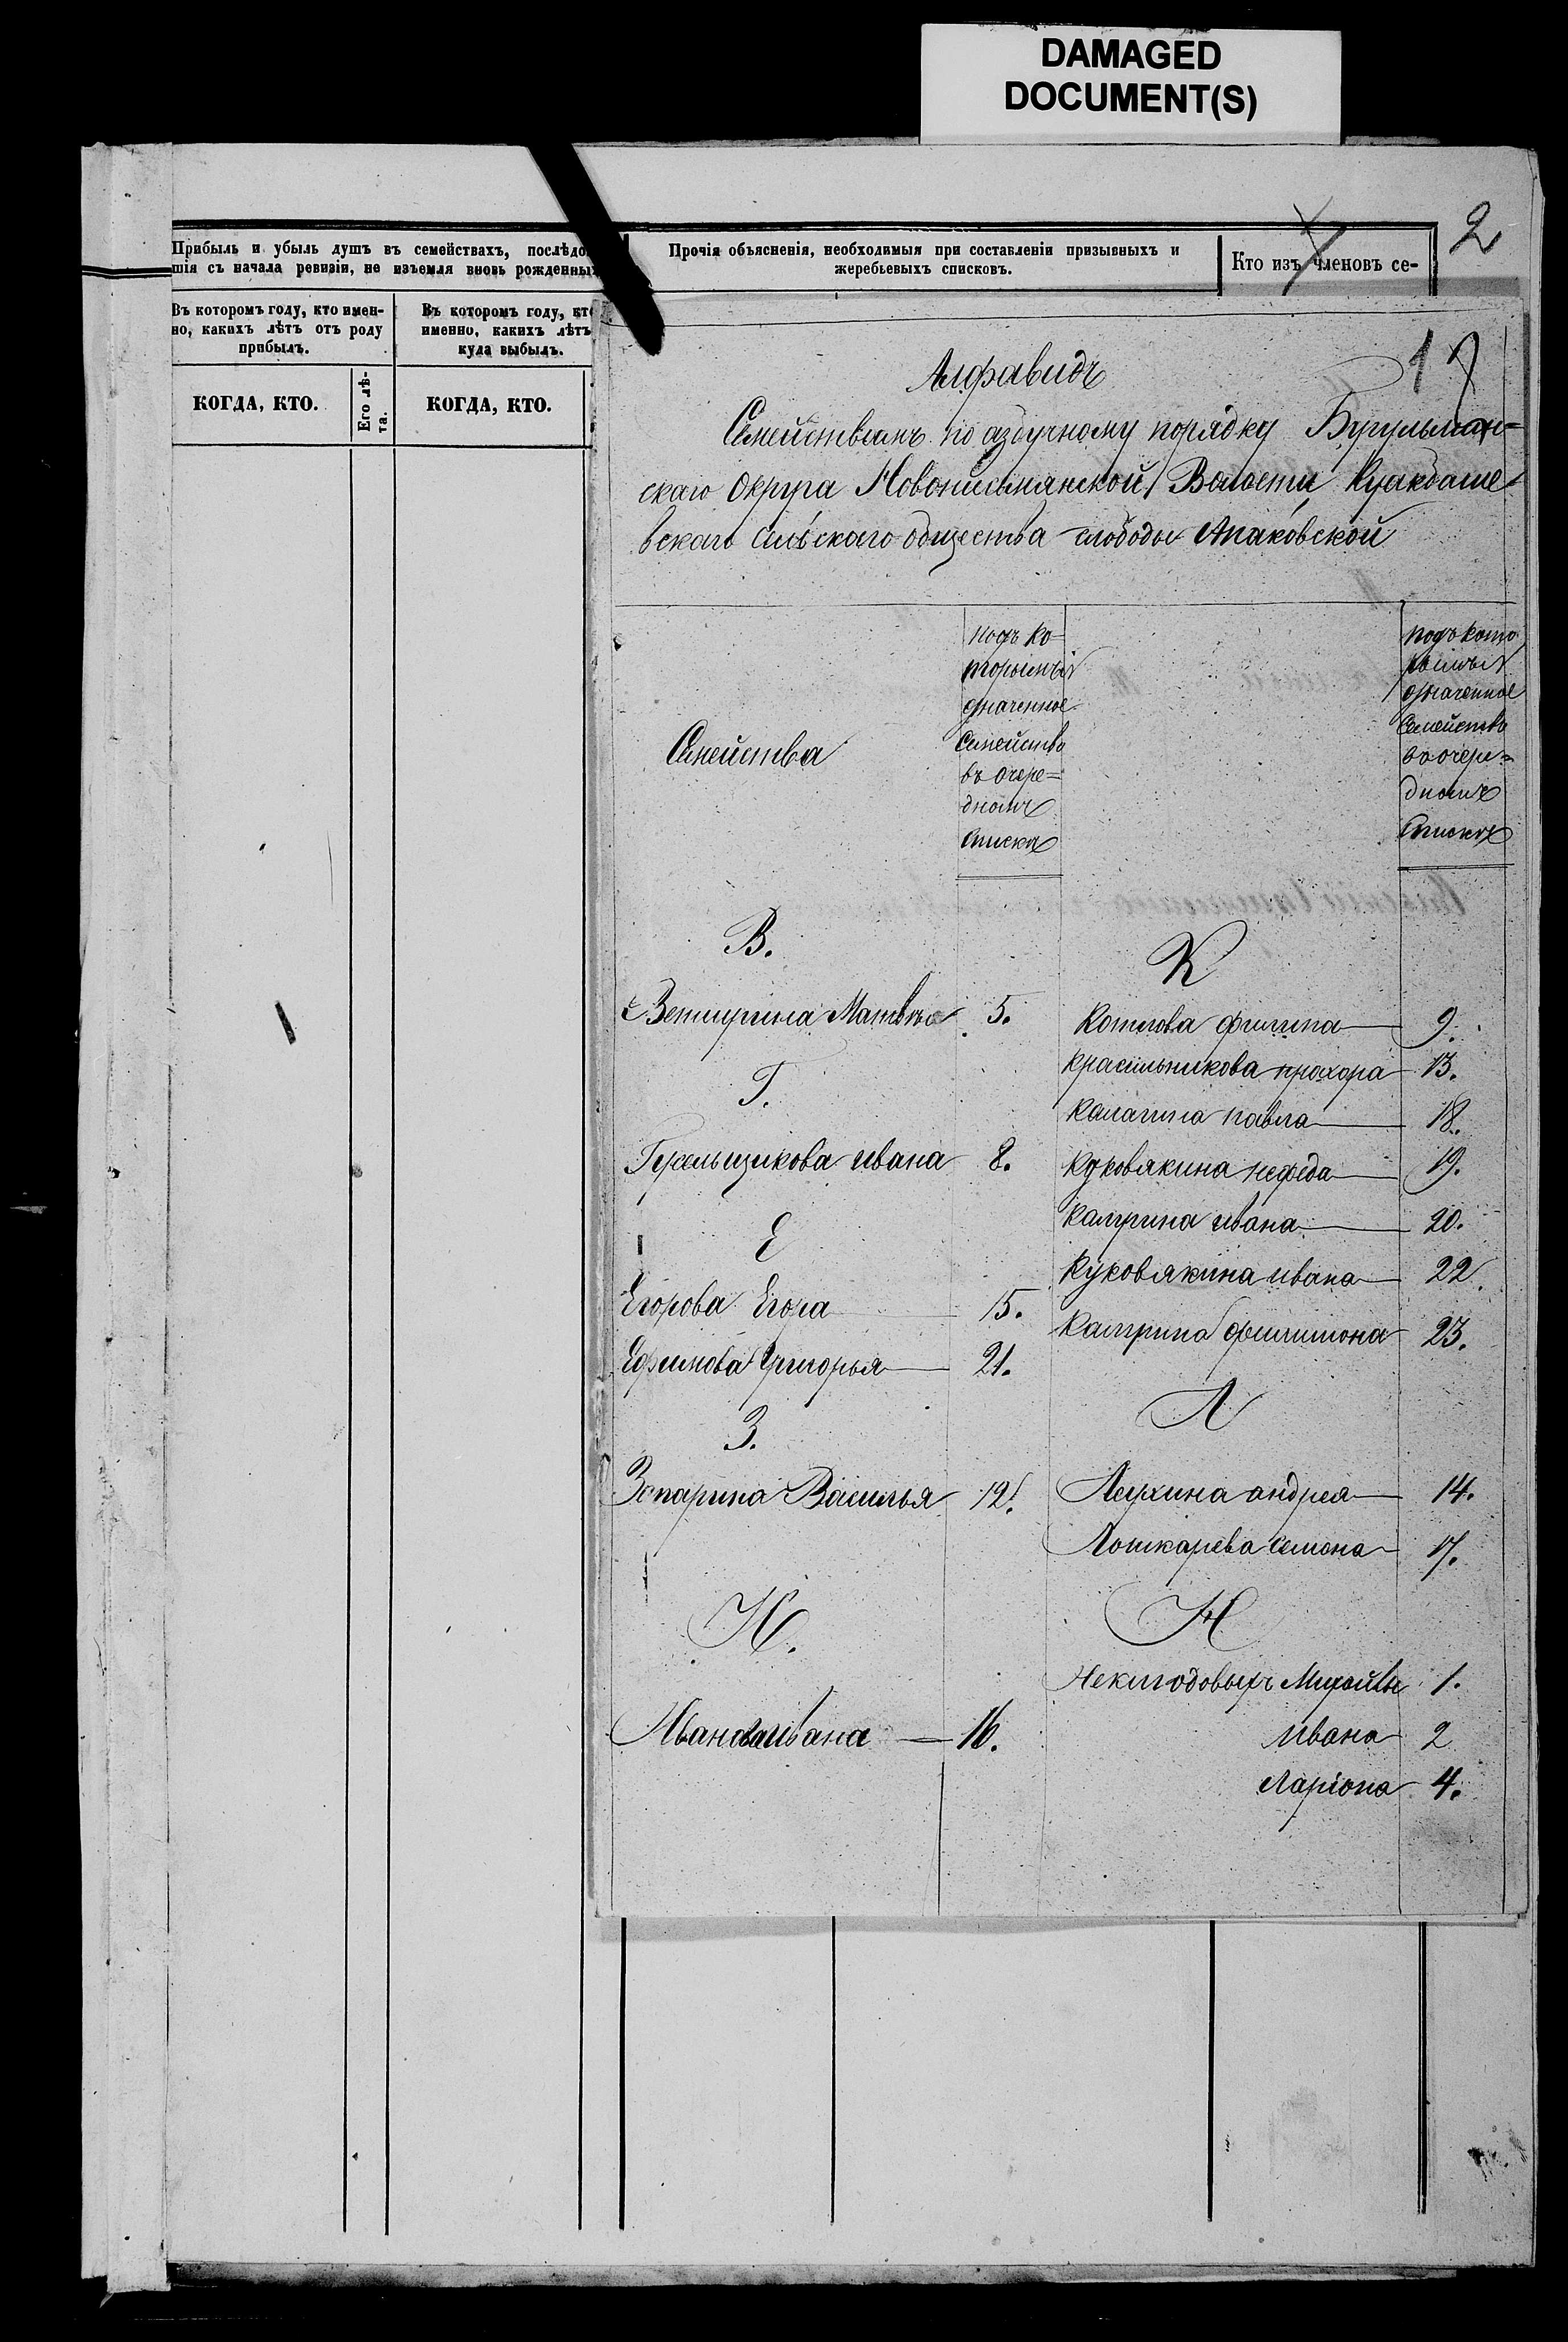 DAMAGED
DOCUMENT(S)
2
Прибыль и убыль душъ въ семействахъ, послѣдо
шія съ начала ревизіи, не изъемля вновь рожденных
Прочія объясненія, необходимыя при составленіи призывныхъ и
жеребьевыхъ списковъ.
Кто изъ членовъ се-
Въ которомъ году, кто имен-
но, какихъ лѣтъ отъ роду
прибылъ.
Въ которомъ году, кто
именно, какихъ лѣтъ
куда выбылъ.
КОГДА, КТО.
Его лѣ-
та.
КОГДА, КТО.
17
Алфавидъ
Семействамъ по азбучному порядку Бугульман=
скаго Округа Новописьмянской Волости Куакбаше-
вскаго сельскаго общества слободы Апаковской
Семейства
подъ ко=
торымъ
означенное
Семейство
въ очере=
дномъ
Списке
подъ кото
рымъ
означенное
Семейство
въ очере=
дномъ
Списке
В.
Ветчурина Матвея 5.
Г.
ивана 8.
Е
Егорова Егора 15.
Ефимова Григорья 21.
З.
Зопарина Василья 12.
И.
Иванова ивана 16.
К
Котлова филипа 9.
красильникова прохора 13.
калагина павла 18.
куковякина нефеда 19.
камрина ивана 20.
куковякина ивана 22.
камрина филимона 23.
Л
андрея 14.
Лошкарева семена 17.
Н
1.
ивана 2
Ларіона 4.